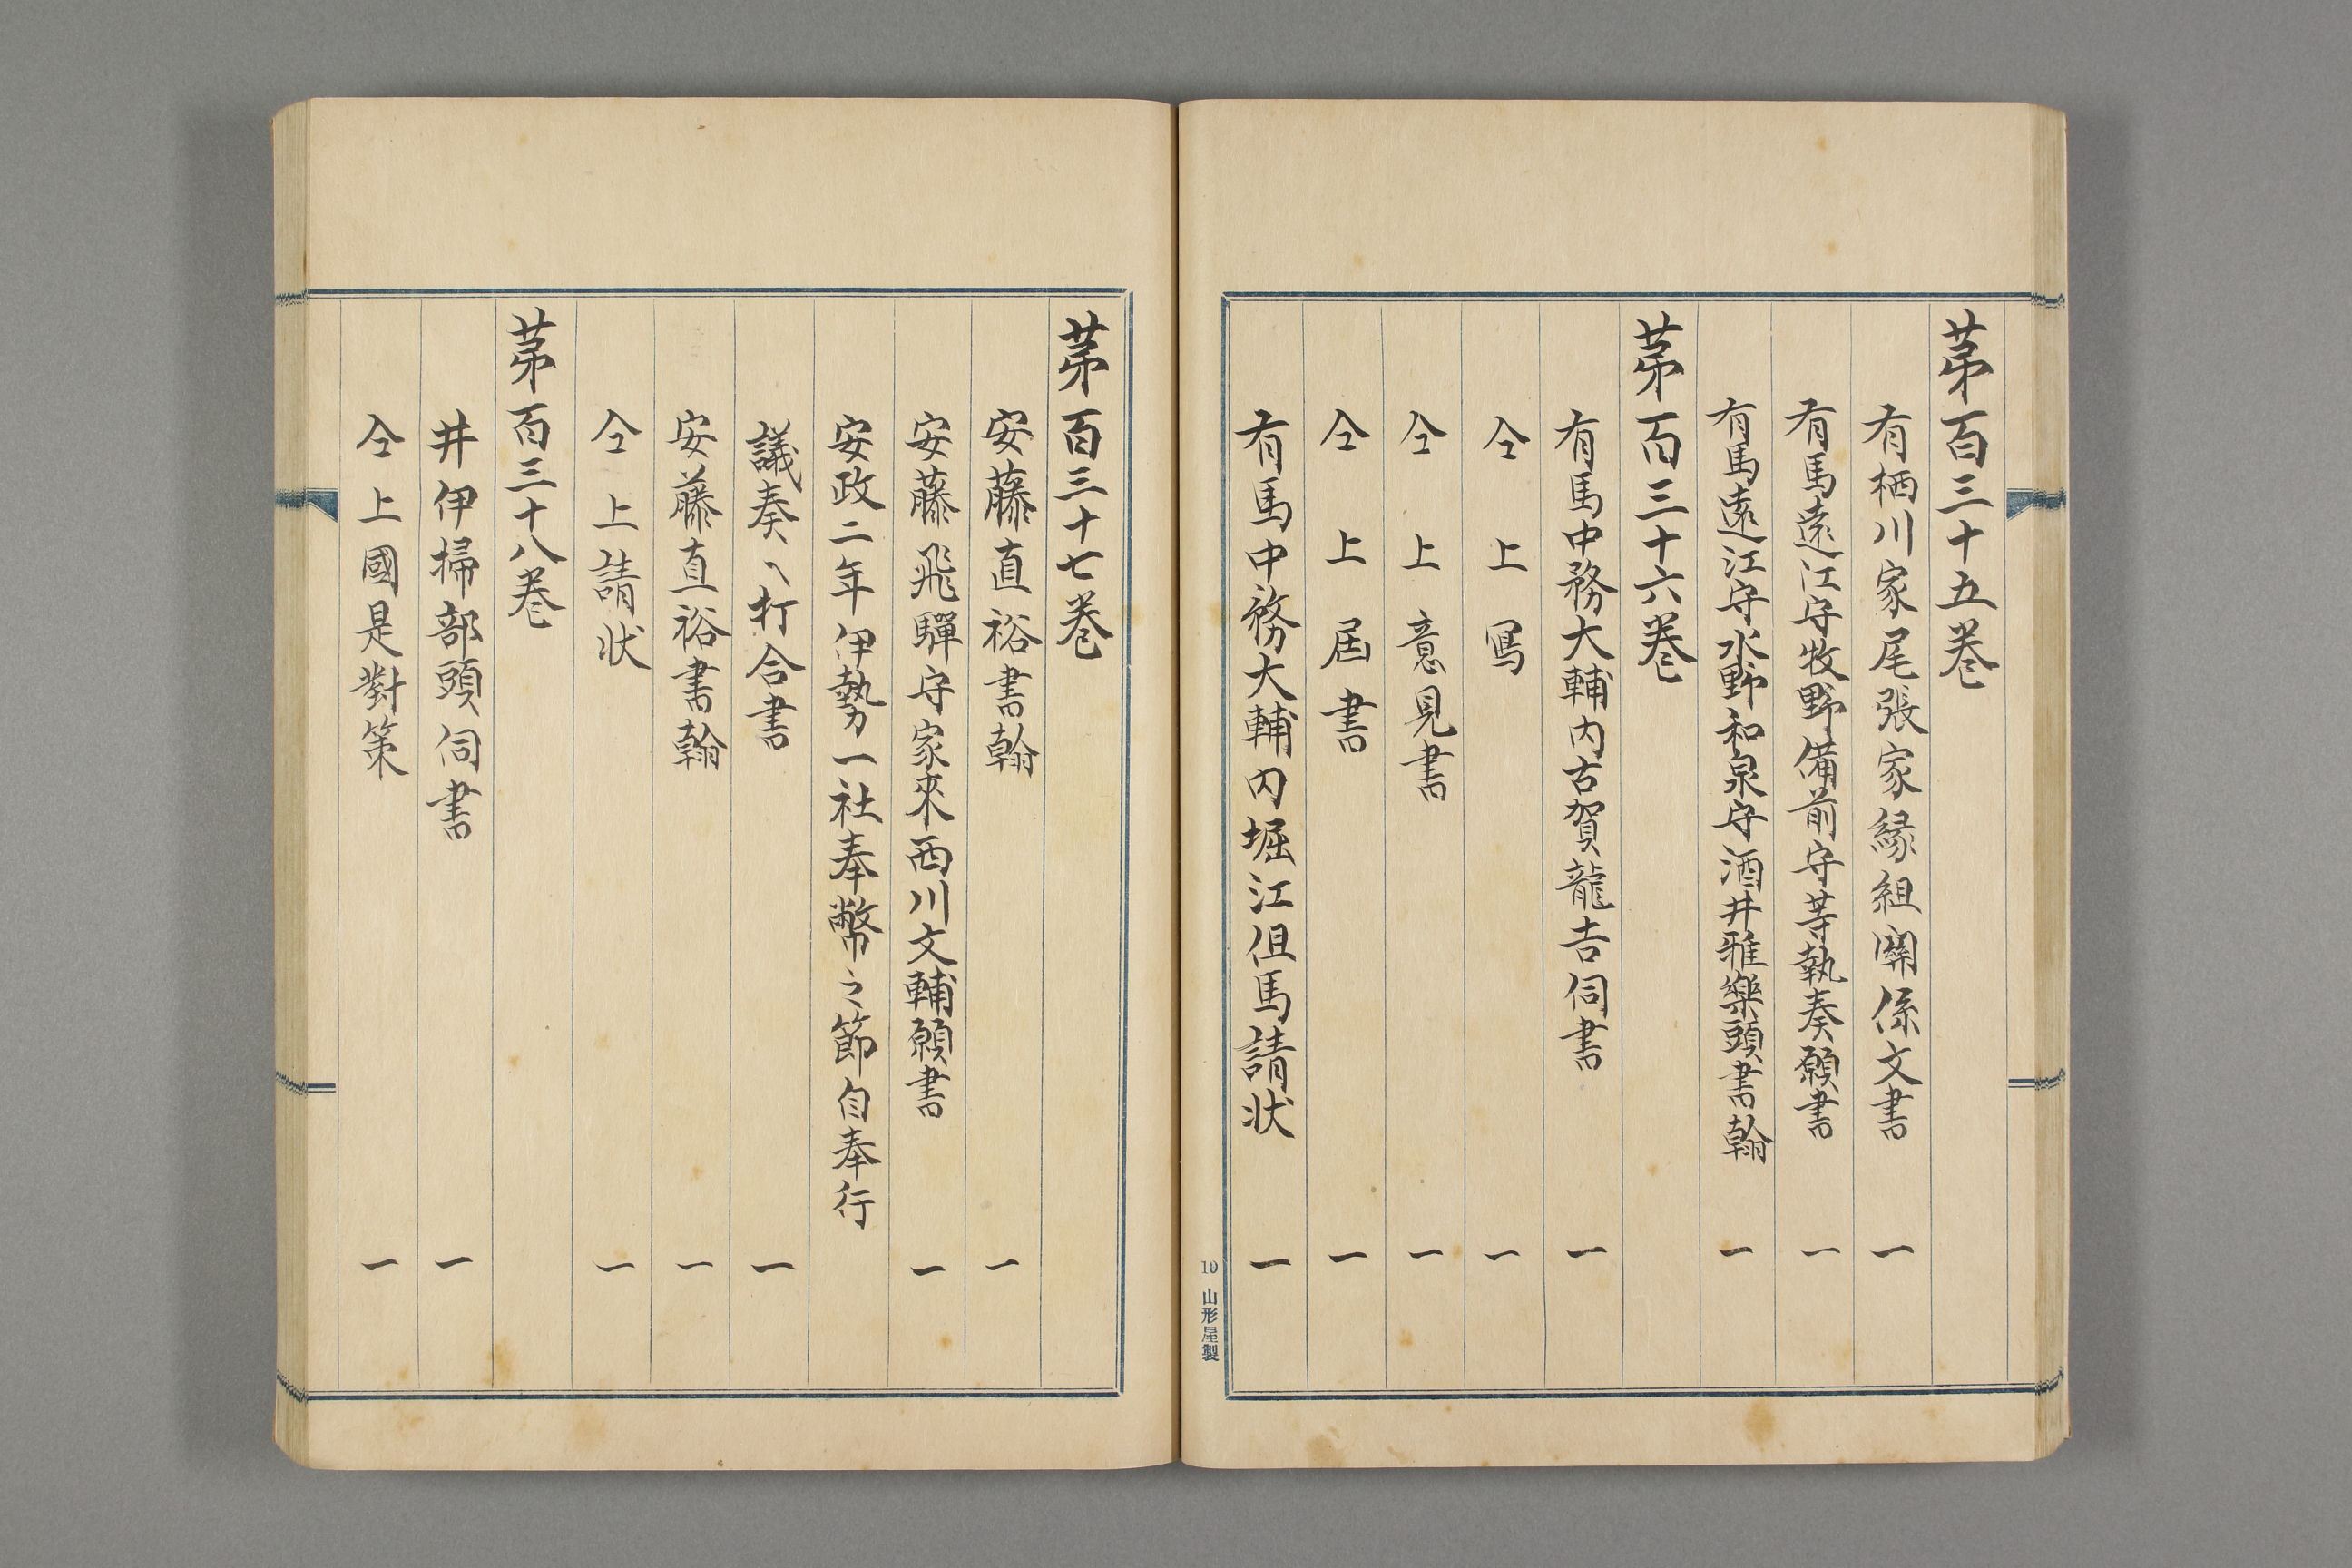 第百三十五巻
有栖川家尾張家縁組関係文書 一
有馬遠江守牧野備前守等執奏願書 一
有馬遠江守水野和泉守酒井雅樂頭書翰 一
第百三十六巻
有馬中務大輔内古賀龍吉伺書 一
仝上寫 一
仝上意見書 一
仝上届書 一
有馬中務大輔内堀江但馬請状 一
10 山形屋製
第百三十七巻
安藤直裕書翰 一
安藤飛驒守家來西川文輔願書 一
安政二年伊勢一社奉幣之節自奉行
議奏ヘ打合書 一
安藤直裕書翰 一
仝上請状 一
第百三十八巻
井伊掃部頭伺書 一
仝上國是對策 一